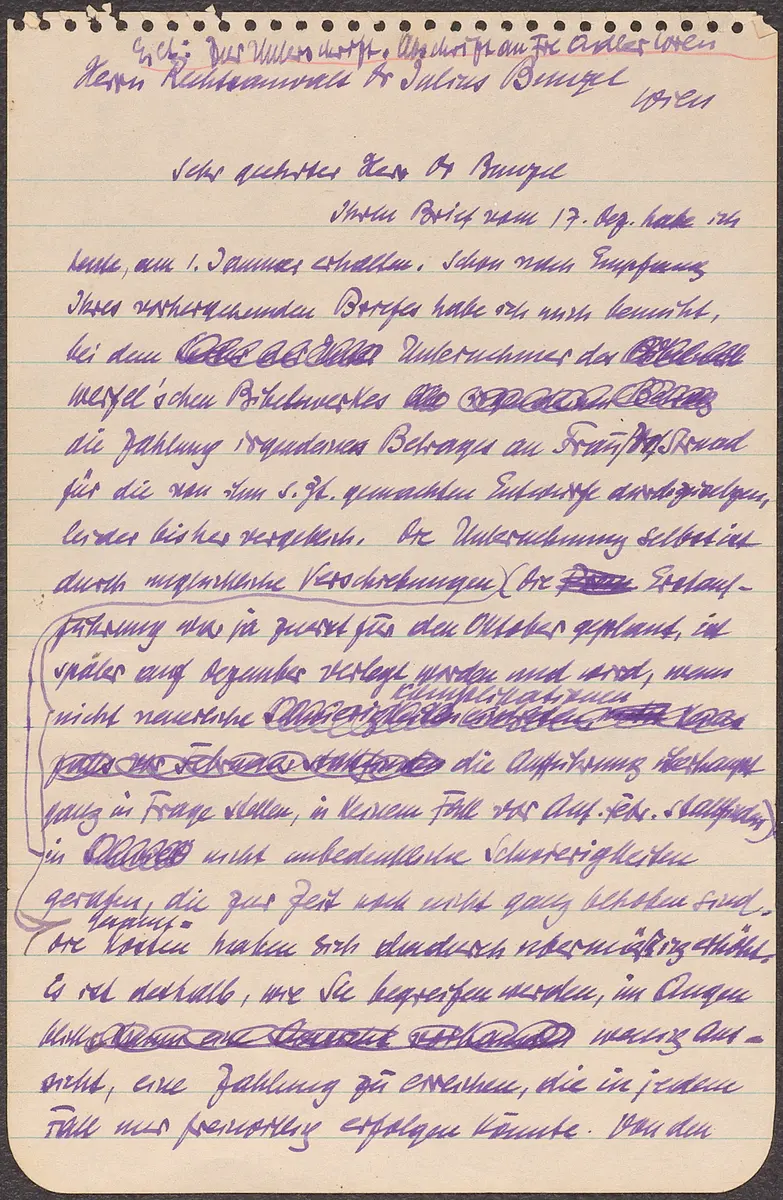 Abschrift an Fr. Adler Wien
Herrn Rechtsanwalt Dr Julius Bunzel
Wien
Sehr geehrter Herr Dr Bunzel
Ihren Brief vom 17. Dez. habe ich
heute, am 1. Januar erhalten. Schon nach Empfang
Ihres vorhergehenden Briefes habe ich mich bemüht,
bei dem Unternehmer des
Werfel'schen Bibelwerkes
die Zahlung irgendeines Betrages an Frau Strnad
für die von ihm s. Zt. gemachten Entwürfe durchzusetzen,
leider bisher vergeblich. Die Unternehmung selbst ist
durch unglückliche Verschiebungen (die Erstauf-
führung war ja zuerst für den Oktober geplant, ist
später auf Dezember verlegt worden und wird, wenn
nicht neuerliche Komplikationen
die Aufführung überhaupt
ganz in Frage stellen, in keinem Fall vor Anf. Febr. stattfinden)
in nicht unbedenkliche Schwierigkeiten
geraten, die zur Zeit noch nicht ganz behoben sind.
Die Gesamt=kosten haben sich dadurch übermäßig erhöht.
Es ist deshalb, wie Sie begreifen werden, im Augen
blick wenig Aus=
sicht, eine Zahlung zu erreichen, die in jedem
Fall nur freiwillig erfolgen könnte. Von den